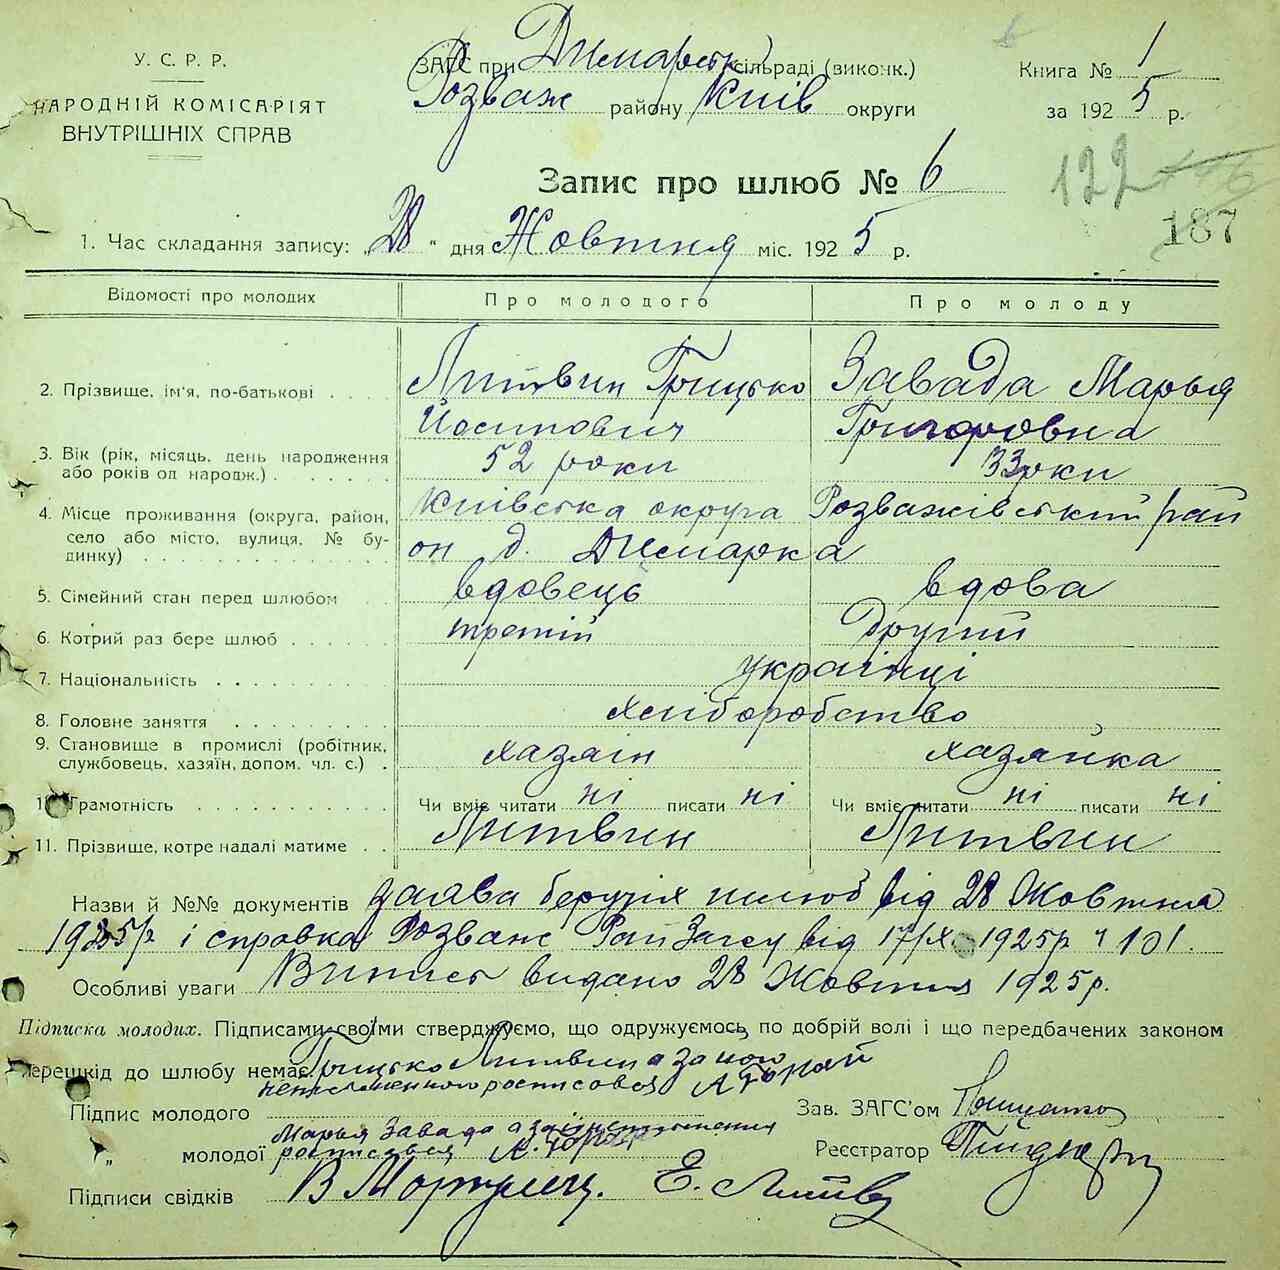 У. С. Р. Р.
НАРОДНІЙ КОМІСАРІЯТ
ВНУТРІШНІХ СПРАВ
ЗАГС при Димарськ сільраді (виконк.)
Розваж району Київ округи
Книга № 1
за 1925 р.
Запис про шлюб № 6
122
187
1. Час складання запису: „28" дня Жовтня міс. 1925 р.
Відомості про молодих Про молодого Про молоду
2. Прізвище, ім'я, по-батькові . . . . Литвин Грицько Йосипович Завада Марья Григоровна
3. Вік (рік, місяць, день народження або років од народж.) . . . . . . 52 роки 33 роки
4. Місце проживання (округа, район, село або місто, вулиця, № будинку) . . . . . . . . . . . . Київська округа Розважівський рай
он д. Димарка
5. Сімейний стан перед шлюбом . . вдовець вдова
6. Котрий раз бере шлюб . . . . . третій Другий
7. Національність . . . . . . . українці
8. Головне заняття . . . . . . . . хліборобство
9. Становище в промислі (робітник, службовець, хазяїн, допом. чл. с.) . хазяін хазяйка
10. Грамотність . . . . . . . . . . Чи вміє читати ні писати ні Чи вміє читати ні писати ні
11. Прізвище, котре надалі матиме . . Литвин Литвин
Назви й №№ документів заява беручіх шлюб від 28 Жовтня
1925р і справка Розваж РайЗагсу від 17/IX 1925р ч 101.
Особливі уваги Випись видано 28 Жовтня 1925 р.
Підписка молодих. Підписами своїми стверджуємо, що одружуємось по добрій волі і що передбачених законом
перешкід до шлюбу немає. Грицько Литвин а за його
неписьменного росписовся
Підпис молодого
Зав. ЗАГС'ом
Марья Завада а за неписьменну
„ молодої росписовся
Реєстратор
Підписи свідків Е. Литв